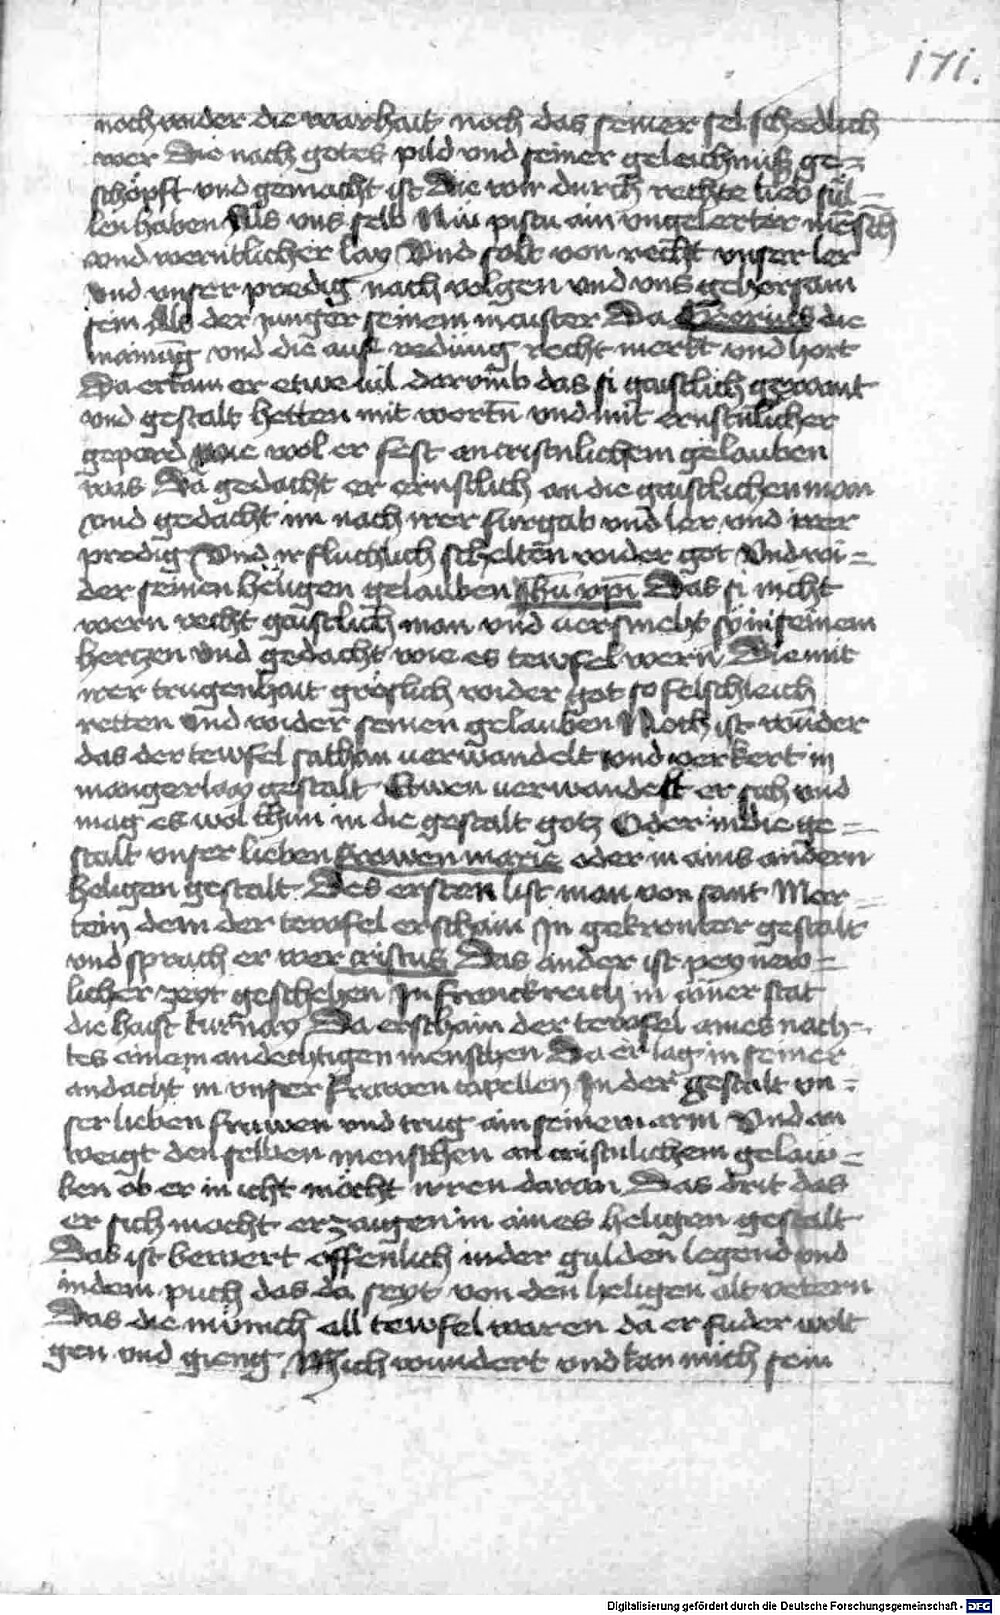 171.
noch wider die warhait noch das seiner sel schedlich
wer Die nach gotes pild vnd seiner geleichnuß ge=
schöpft vnd gemacht ist Die wir durch rechte lieb sül=
len haben Als vns selb Nu pistu ain vngelerter mensch
vnd werntlicher lay Vnd solt von recht vnser ler
vnd vnser predig nach volgen vnd vns gehorsam
sein Als der junger seinem maister Da Georius die
mainung vnd die auß redung recht merkt vnd hort
Da erkam er etwe vil darumb das si gaistlich gewant
vnd gestalt hetten mit wortn vnd mit ernstlicher
geperd wie wol er fest an cristnlichem gelauben
was Da gedacht er ernstlich an die gaistlichen man
vnd gedacht im nach irer furgab vnd ler vnd irer
predig Vnd ir fluchlich schelten wider got Vnd wi=
der seinen heligen gelauben jhu xpi Das si nicht
wern recht gaistlich man vnd versmeht sy in seinem
hertzen vnd gedacht wie es tewfel wern Die mit
irer trugenhait gröslich wider got so felschleich
retten vnd wider seinen gelauben Noch ist wunder
das der tewfel sathan verwandelt vnd verkert in
mangerlay gestalt Etwen verwandelt er sich vnd
mag es wol thun in die gestalt gotz Oder in die ge=
stalt vnser lieben frawen marie oder in ains andern
heligen gestalt Des ersten list man von sant Mer=
tein dem der tewfel erschain In gekronter gestalt
vnd sprach er wer cristus Das ander ist pey new=
licher zeyt geschehen In Franckreich in ainer stat
die haist turnay Da erschain der tewfel aines nach=
tes ainem andechtigen menschen Da er lag in seiner
andacht in vnser frawen capellen In der gestalt vn=
ser lieben frawen vnd trug ain an seinem arm Vnd an
weigt den selben menschen an cristnlichem gelaw=
ben ob er in icht mocht irren daran Das drit das
er sich macht erzaigen in aines heligen gestalt
Das ist bewert offenlich in der gulden legend vnd
in dem puch das da seyt von den heligen alt vetern
Das die münich all tewfel waren da er fuder wolt
gen vnd gieng Mich wundert vnd kan mich sein
Digitalisierung gefördert durch die Deutsche Forschungsgemeinschaft - DFG